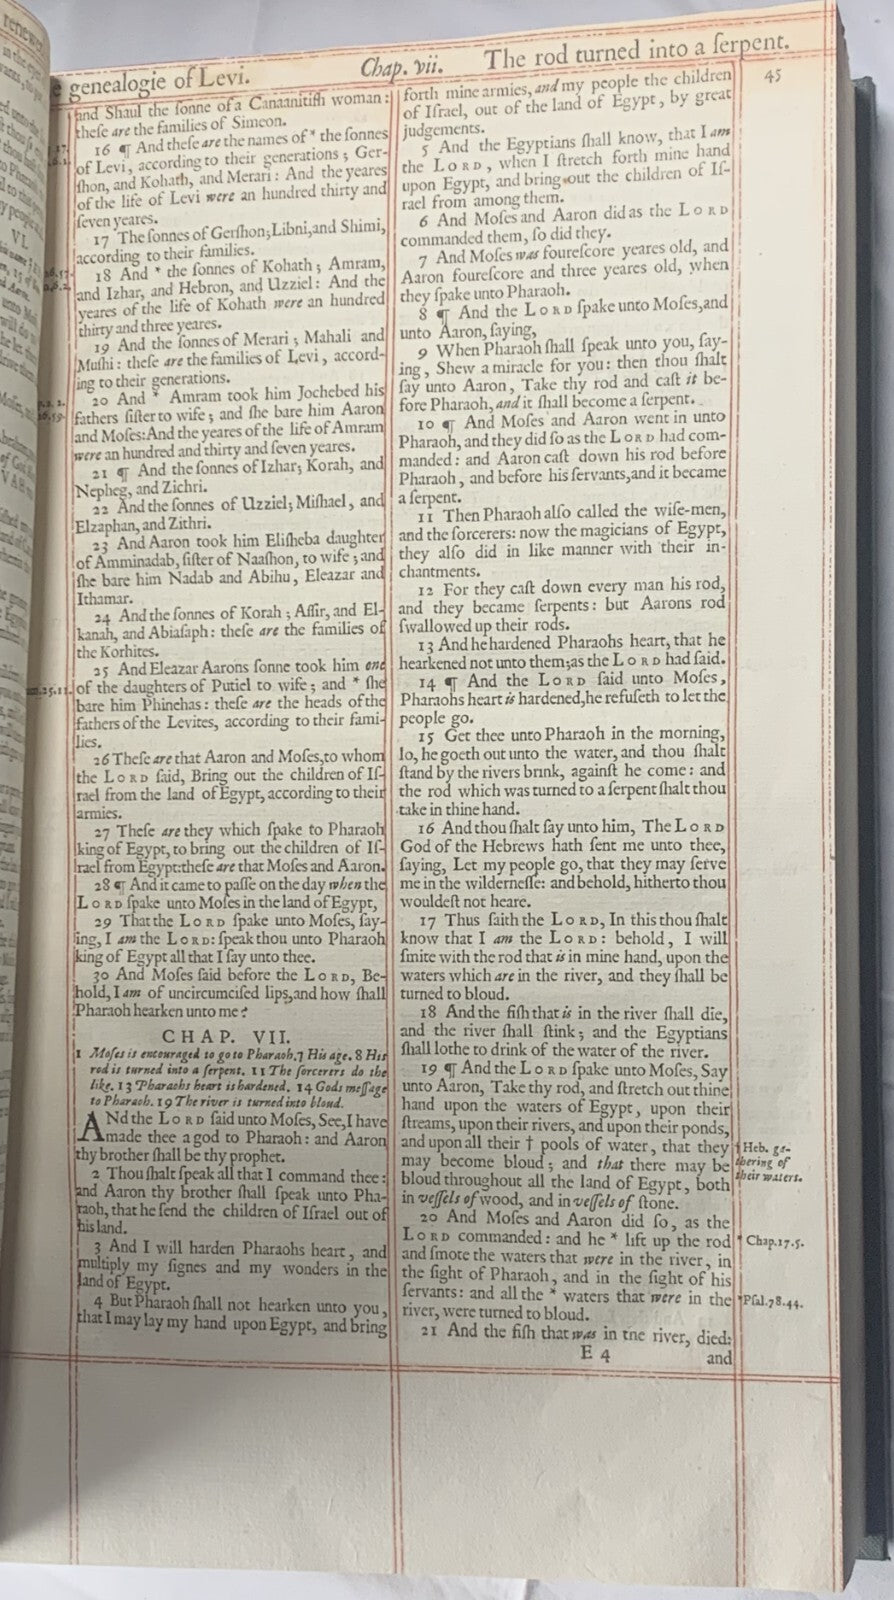 genealogie of Levi. Chap. vii. The rod turned into a ſerpent.
45
and Shaul the ſonne of a Canaanitiſh woman:
theſe are the families of Simeon.
16 ¶ And theſe are the names of * the ſonnes
of Levi, according to their generations; Ger-
ſhon, and Kohath, and Merari: And the yeares
of the life of Levi were an hundred thirty and
ſeven yeares.
17 The ſonnes of Gerſhon; Libni, and Shimi,
according to their families.
18 And * the ſonnes of Kohath; Amram,
and Izhar, and Hebron, and Uzziel: And the
yeares of the life of Kohath were an hundred
thirty and three yeares.
19 And the ſonnes of Merari; Mahali and
Muſhi: theſe are the families of Levi, accord-
ing to their generations.
20 And * Amram took him Jochebed his
fathers ſiſter to wife; and ſhe bare him Aaron
and Moſes: And the yeares of the life of Amram
were an hundred and thirty and ſeven yeares.
21 ¶ And the ſonnes of Izhar; Korah, and
Nepheg, and Zichri.
22 And the ſonnes of Uzziel; Miſhael, and
Elzaphan, and Zithri.
23 And Aaron took him Eliſheba daughter
of Amminadab, ſiſter of Naaſhon, to wife; and
ſhe bare him Nadab and Abihu, Eleazar and
Ithamar.
24 And the ſonnes of Korah; Aſſir, and El-
kanah, and Abiaſaph: theſe are the families of
the Korhites.
25 And Eleazar Aarons ſonne took him one
of the daughters of Putiel to wife; and * ſhe
bare him Phinehas: theſe are the heads of the
fathers of the Levites, according to their fami-
lies.
26 Theſe are that Aaron and Moſes, to whom
the LORD ſaid, Bring out the children of Iſ-
rael from the land of Egypt, according to their
armies.
27 Theſe are they which ſpake to Pharaoh
king of Egypt, to bring out the children of Iſ-
rael from Egypt: theſe are that Moſes and Aaron.
28 ¶ And it came to paſſe on the day when the
LORD ſpake unto Moſes in the land of Egypt,
29 That the LORD ſpake unto Moſes, ſay-
ing, I am the LORD: ſpeak thou unto Pharaoh
king of Egypt all that I ſay unto thee.
30 And Moſes ſaid before the LORD, Be-
hold, I am of uncircumciſed lips, and how ſhall
Pharaoh hearken unto me?
CHAP. VII.
1 Moſes is encouraged to go to Pharaoh. 7 His age. 8 His
rod is turned into a ſerpent. 11 The ſorcerers do the
like. 13 Pharaohs heart is hardened. 14 Gods meſſage
to Pharaoh. 19 The river is turned into bloud.
ANd the LORD ſaid unto Moſes, See, I have
made thee a god to Pharaoh: and Aaron
thy brother ſhall be thy prophet.
2 Thou ſhalt ſpeak all that I command thee:
and Aaron thy brother ſhall ſpeak unto Pha-
raoh, that he ſend the children of Iſrael out of
his land.
3 And I will harden Pharaohs heart, and
multiply my ſignes and my wonders in the
land of Egypt.
4 But Pharaoh ſhall not hearken unto you,
that I may lay my hand upon Egypt, and bring
forth mine armies, and my people the children
of Iſrael, out of the land of Egypt, by great
judgements.
5 And the Egyptians ſhall know, that I am
the LORD, when I ſtretch forth mine hand
upon Egypt, and bring out the children of Iſ-
rael from among them.
6 And Moſes and Aaron did as the LORD
commanded them, ſo did they.
7 And Moſes was foureſcore yeares old, and
Aaron foureſcore and three yeares old, when
they ſpake unto Pharaoh.
8 ¶ And the LORD ſpake unto Moſes, and
unto Aaron, ſaying,
9 When Pharaoh ſhall ſpeak unto you, ſay-
ing, Shew a miracle for you: then thou ſhalt
ſay unto Aaron, Take thy rod and caſt it be-
fore Pharaoh, and it ſhall become a ſerpent.
10 ¶ And Moſes and Aaron went in unto
Pharaoh, and they did ſo as the LORD had com-
manded: and Aaron caſt down his rod before
Pharaoh, and before his ſervants, and it became
a ſerpent.
11 Then Pharaoh alſo called the wiſe-men,
and the ſorcerers: now the magicians of Egypt,
they alſo did in like manner with their in-
chantments.
12 For they caſt down every man his rod,
and they became ſerpents: but Aarons rod
ſwallowed up their rods.
13 And he hardened Pharaohs heart, that he
hearkened not unto them; as the LORD had ſaid.
14 ¶ And the LORD ſaid unto Moſes,
Pharaohs heart is hardened, he refuſeth to let the
people go.
15 Get thee unto Pharaoh in the morning,
lo, he goeth out unto the water, and thou ſhalt
ſtand by the rivers brink, againſt he come: and
the rod which was turned to a ſerpent ſhalt thou
take in thine hand.
16 And thou ſhalt ſay unto him, The LORD
God of the Hebrews hath ſent me unto thee,
ſaying, Let my people go, that they may ſerve
me in the wilderneſſe: and behold, hitherto thou
wouldeſt not heare.
17 Thus ſaith the LORD, In this thou ſhalt
know that I am the LORD: behold, I will
ſmite with the rod that is in mine hand, upon the
waters which are in the river, and they ſhall be
turned to bloud.
18 And the fiſh that is in the river ſhall die,
and the river ſhall ſtink; and the Egyptians
ſhall lothe to drink of the water of the river.
19 ¶ And the LORD ſpake unto Moſes, Say
unto Aaron, Take thy rod, and ſtretch out thine
hand upon the waters of Egypt, upon their
ſtreams, upon their rivers, and upon their ponds,
and upon all their † pools of water, that they
may become bloud; and that there may be
bloud throughout all the land of Egypt, both
in veſſels of wood, and in veſſels of ſtone.
20 And Moſes and Aaron did ſo, as the
LORD commanded: and he * lift up the rod
and ſmote the waters that were in the river, in
the ſight of Pharaoh, and in the ſight of his
ſervants: and all the * waters that were in the
river, were turned to bloud.
21 And the fiſh that was in the river, died;
E 4 and
† Heb. ga-
thering of
their waters.
* Chap.17.5.
*Pſal.78.44.